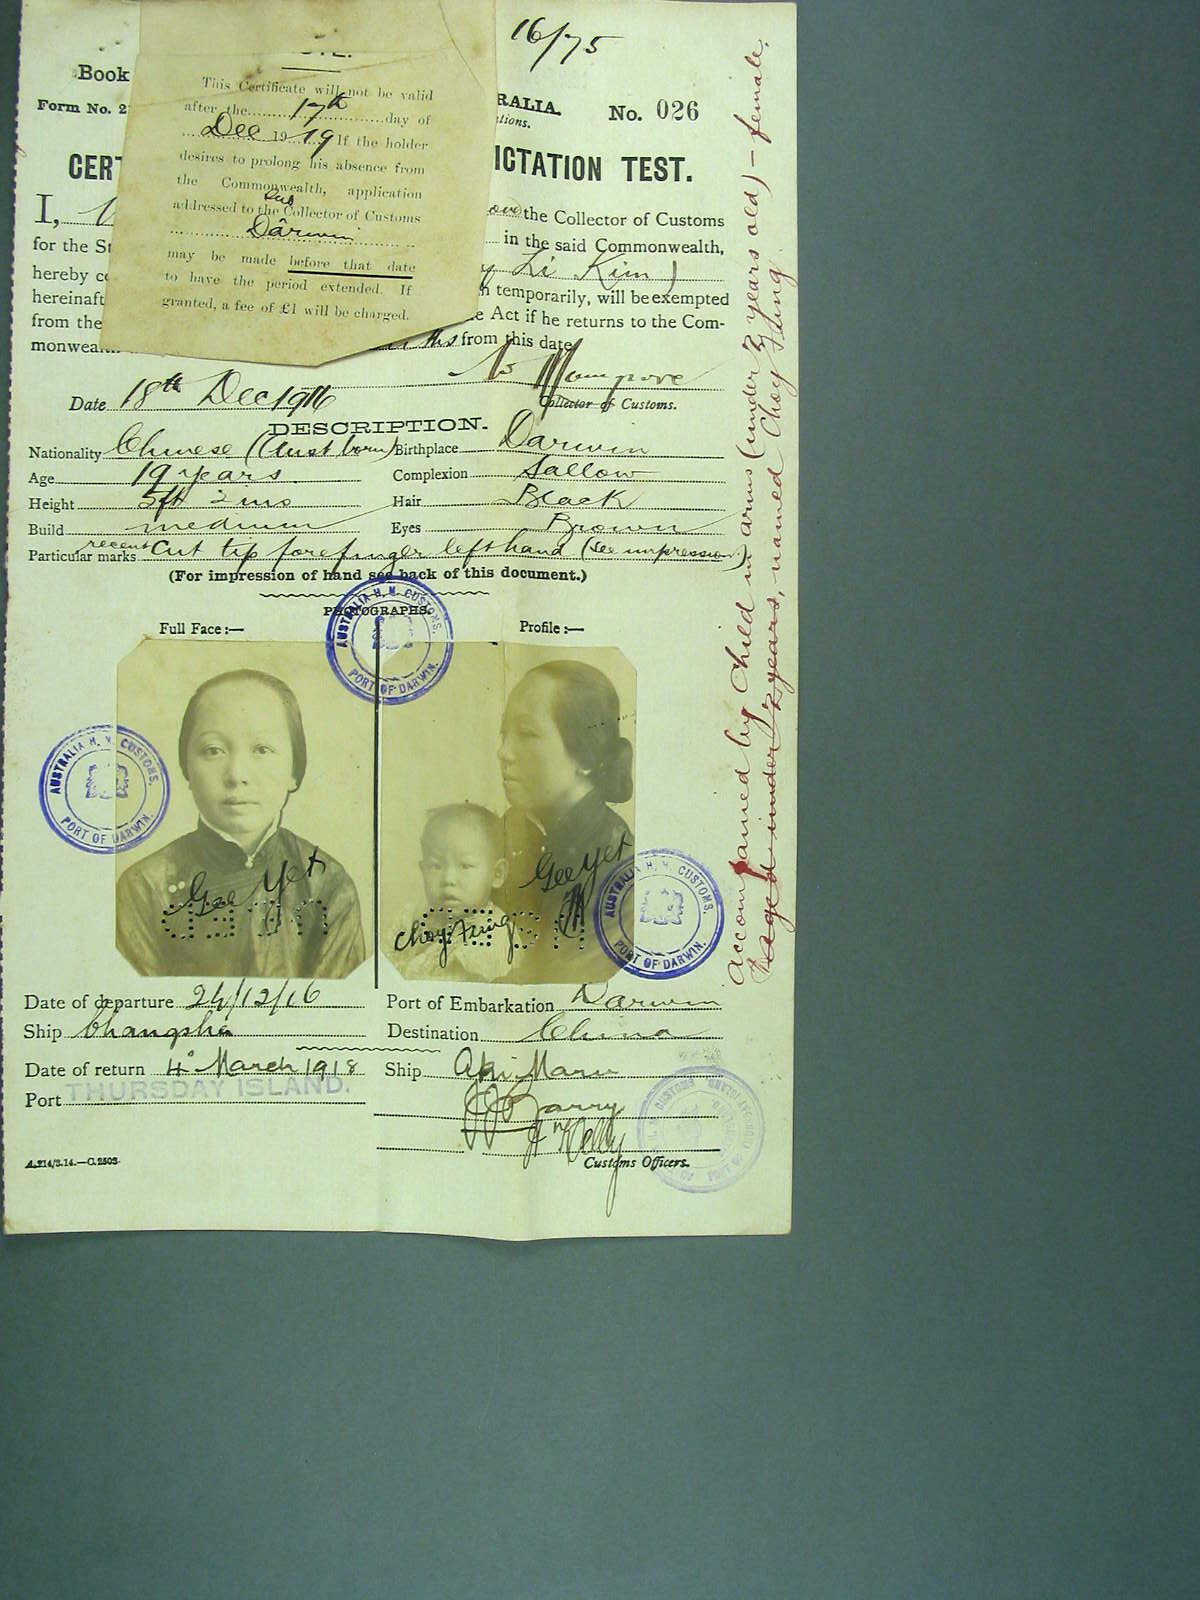 16/75
Book
Form No. 2
RALIA.
No. 026
CERT
ICTATION TEST.
This Certificate will not be valid
after the 17th day of
Dec 1919 If the holder
desires to prolong his absence from
the Commonwealth, application
addressed to the Sub Collector of Customs
Darwin
may be made before that date
to have the period extended. If
granted, a fee of £1 will be charged.
I,
the Collector of Customs
for the St
in the said Commonwealth,
hereby ce
Li Kim)
hereinaft
n temporarily, will be exempted
from the
e Act if he returns to the Com-
monwealt
ths from this date
Date 18th Dec 1916
Collector of Customs.
DESCRIPTION.
Nationality Chinese (Aust born) Birthplace Darwin
Age 19 years Complexion Sallow
Height 5ft 2 ins Hair Black
Build medium Eyes Brown
Particular marks recent Cut tip forefinger left hand (see impression)
(For impression of hand see back of this document.)
PHOTOGRAPHS.
Full Face:— Profile:—
AUSTRALIA H. M. CUSTOMS.
PORT OF DARWIN.
AUSTRALIA H. M. CUSTOMS.
PORT OF DARWIN.
Gee Yet
Gee Yet
Choy Fung
AUSTRALIA H. M. CUSTOMS.
PORT OF DARWIN.
Date of departure 24/12/16 Port of Embarkation Darwin
Ship Changsha Destination China
Date of return 4 March 1918 Ship Aki Maru
Port THURSDAY ISLAND.
Customs Officers.
A.214/3.14.—C.2503.
accompanied by Child in arms (under 2 years old) – female,
aged under 2 years, named Choy Fung